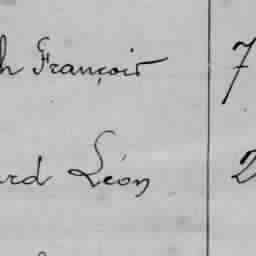 h François 7
ard Léon 2